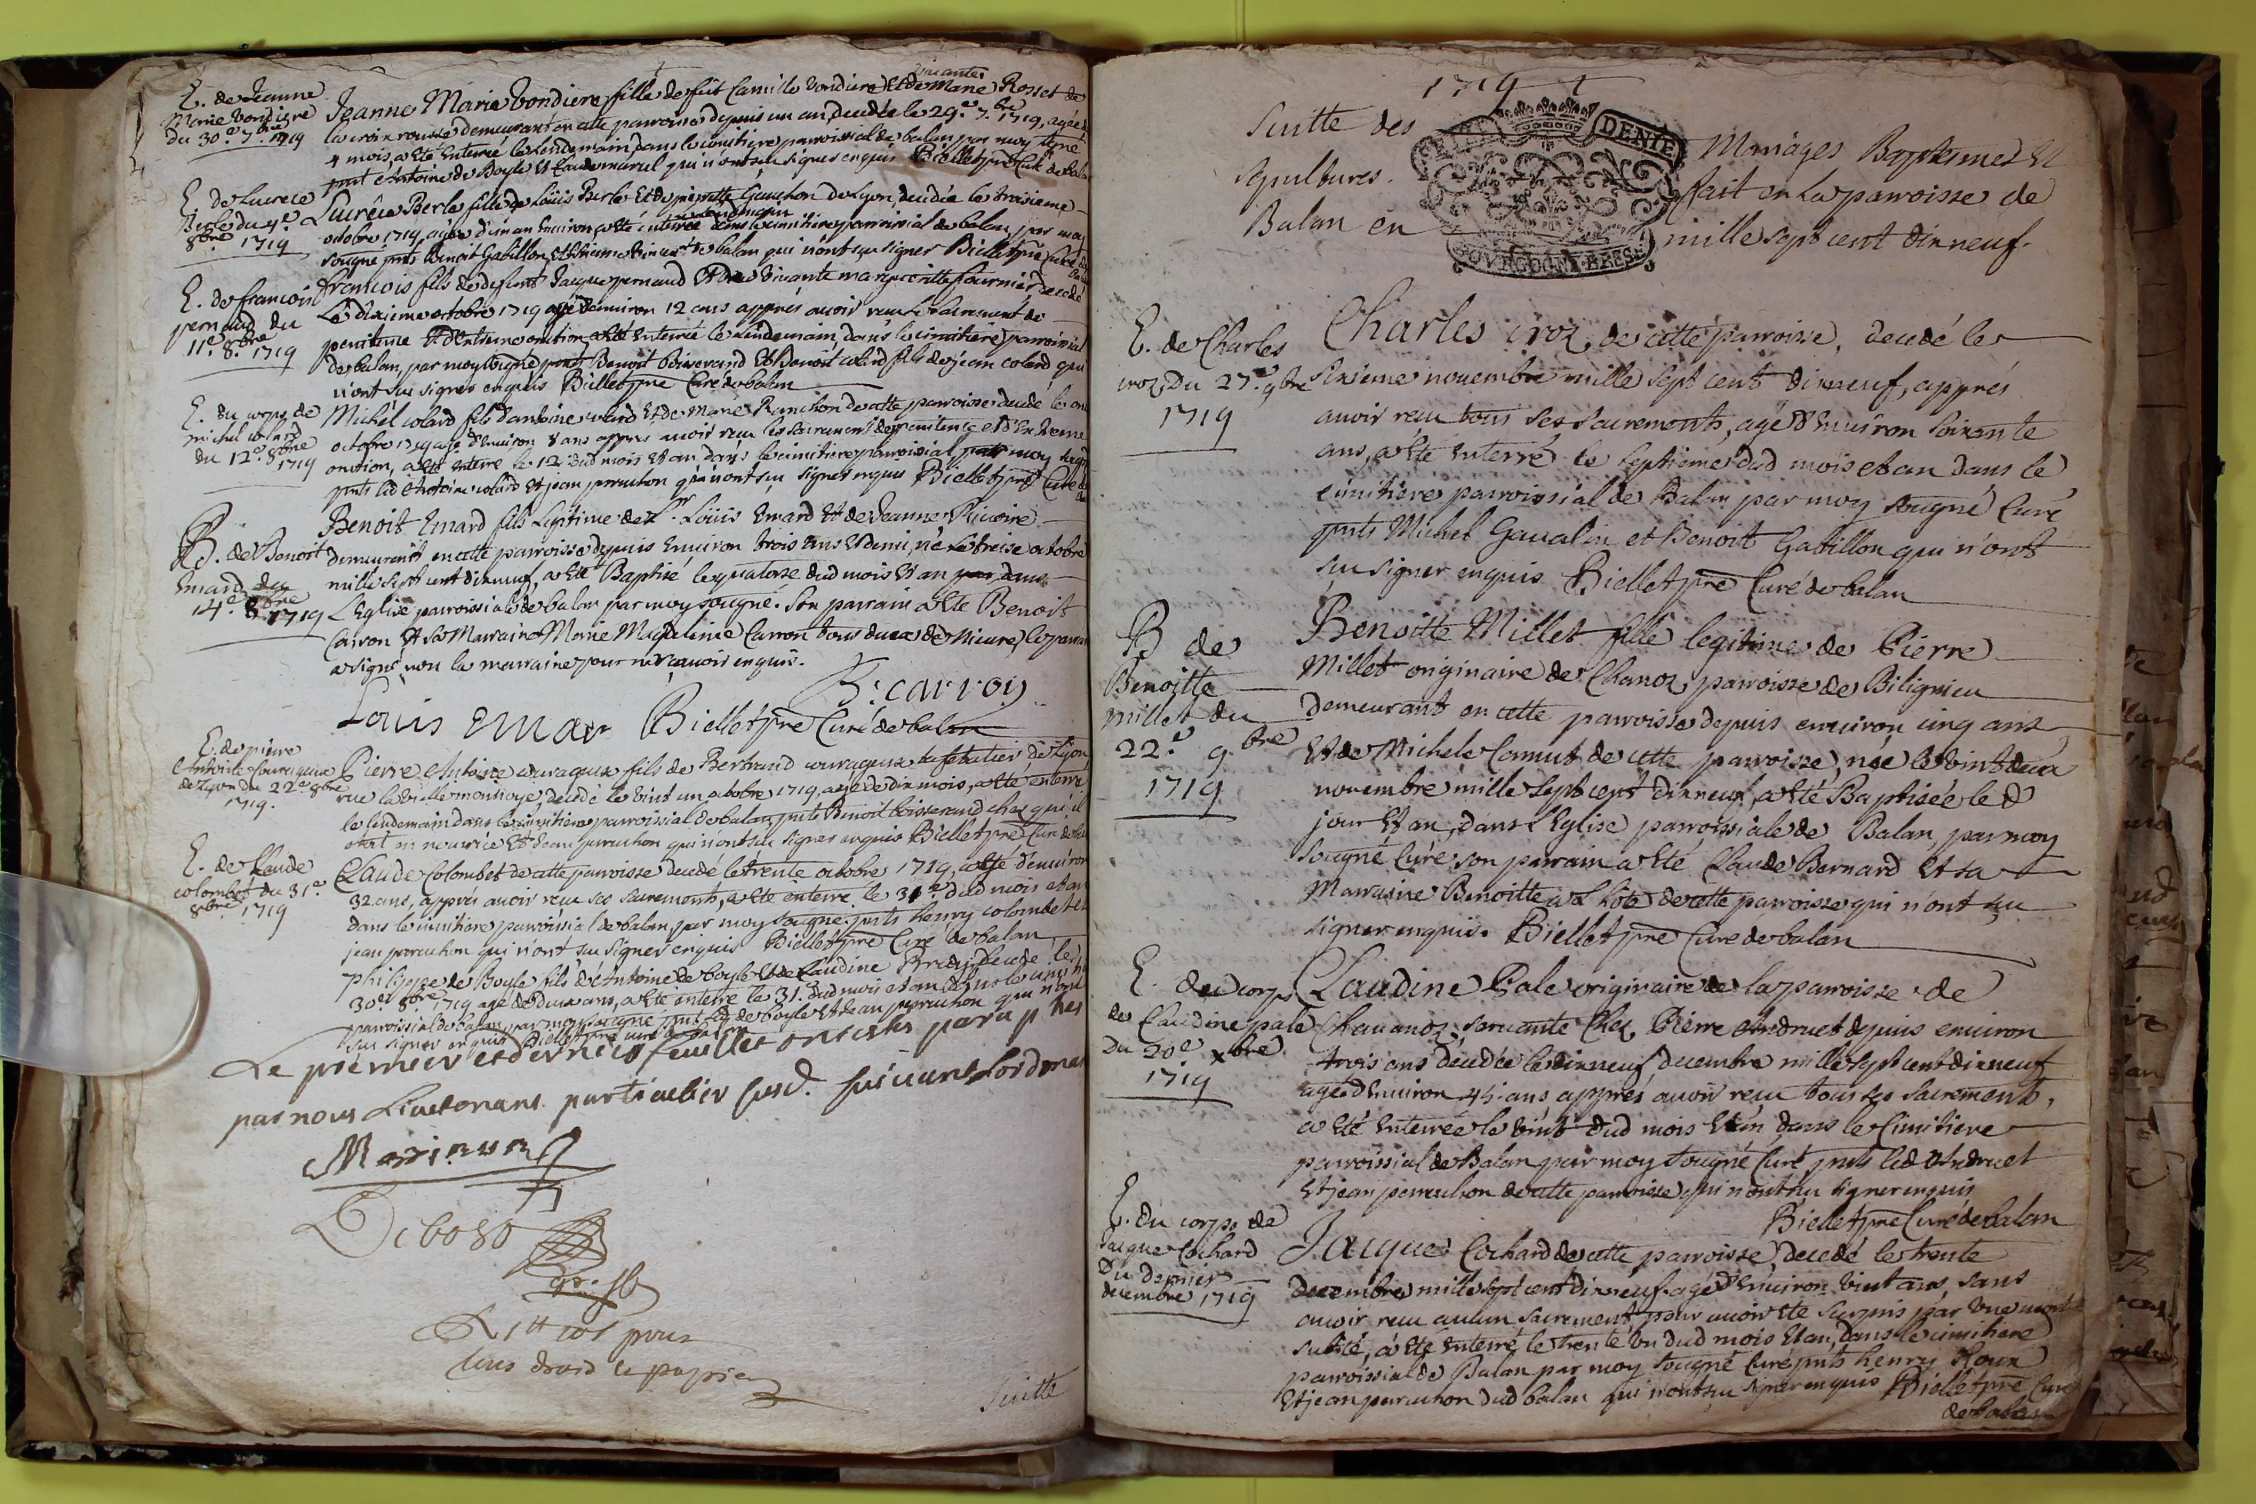 E. de Jeanne
Marie Vondiere
du 30e 7bre 1719
Jeanne Marie Vondiere fille de fût Camille Vondiere Et de vivante Marie Rosset de
la croix rousse demeurant en cette parroisse depuis un an, decedée le 29e 7bre 1719, agée de
4 mois, a été enterrée le lendemain dans le cimitiere parroissial de balan par moy sousigné
pnts Antoine de Boyle Et Claude marcel qui n'ont su signer enquis Billet pre Curé de balan
E. de Lucrece
Berle du 4e
8bre 1719
Lucrêce Berle fille de Loüis Berle Et de pierrette Gauchon de Lyon, decedée le troisieme
octobre 1719 agée d'un an Environ a été interrée le lendemain dans le cimitiere parroissial de balan, par moy
sougné pnts Benoit Gabillon, Et Estienne vincent de balan qui n'ont su signer Biellet pre Curé de
E. de francois
pernaud du
11e 8bre 1719
francois fils de defunt Jacque pernaud Et de vivante marguerite fournier decedé
Le dixieme octobre 1719 agé d'environ 12 ans apprés avoir receu le sacrement de
penitence Et d'Extreme onction, a été Enterré le lendemain, dans le cimitiere parroissial
de balan, par moy sougné pnts Benoit Boisserand Et Benoit colard fils de jean colard qui
n'ont su signer enquis Biellet pre Curé de balan
E. du corps de
michel colard
du 12e 8bre
1719
Michel colard fils d'antoine colard Et de Marie Ranchon de cette parroisse decedé le onze
octobre 1719 agé d'Environ 8 ans apprés avoir receu les sacrement de penitence et d'Extreme
onction, a été enterré le 12e dud mois Et an dans le cimitiere parroissial par moy sougné
pnts led Antoine colard Et jean perruchon qui n'ont su signer enquis Biellet pre Curé de
B. de Benoit
Emard du
14e 8bre 1719
Benoit Emard fils Legitime de Sr. Loüis Emard Et de Jeanne Ricoire
demeurants en cette parroisse depuis Environ trois ans Et demi, né Le treise octobre
mille sept cent dixneuf, a été Baptisé le quatorse dud mois Et an par dans
L'Eglise parroissiale de balan par moy sougné. Son parrain a été Benoit
Carron Et sa Marraine Marie Magdeleine Carron tous deux de Nievre, le parrain
a signé non la marraine pour ne scavoir enquis.
B: carron
Louis Emar Biellet pre Curé de balan
E. de pierre
Antoine Courageux
de Lyon du 22e 8bre
1719.
Pierre Antoine courageux fils de Bertrand courageux taffetatier de Lyon
rue la vieille monnoye, decedé le vint un octobre 1719, agé de dix mois, a été enterré
le lendemain dans le cimitiere parroissial de balan, pnts Benoit boisserand chez qui il
étoit en nourrice Et Jean perruchon qui n'ont su signer enquis Biellet pre Curé de balan
E. de Claude
colombet du 31e
8bre 1719
Claude Colombet de cette parroisse decedé le trente octobre 1719, agé d'environ
32 ans, apprés avoir receu ses sacrements, a été enterré le 31e dud mois et an
dans le cimitiere parroissial de balan par moy sougné, pnts henry colombet et
jean perruchon qui n'ont su signer enquis Biellet pre Curé de balan
Philippe de Boyle fils d'Antoine de boyle Et de Claudine Brudy decedé le
30e 8bre 1719 agé de deux ans, a été enterré le 31e dud mois et an dans le cimi
parroissial de balan par moy sougné pnts led de boyle Et Jean perruchon qui n'ont
su signer enquis Biellet pre curé de balan
Le premier et dernier feuillet ont estés paraphés
par nous Lieutenant particulier susd. suivant Lordonan
Suitte
1719
Suitte des Mariâges Baptesmes Et
Sepultures. fait en La parroisse de
Balan en mille sept cent dixneuf.
DENIE
BOVRGOGNE·BRESSE
E. de Charles
croz du 27e 9bre
1719
Charles croz, de cette parroisse, decedé le
sixieme novembre mille sept cents dixneuf, apprés
avoir receu tous ses sacrements, agé d'Environ soixante
ans, a été Enterré le septieme dud mois et an dans le
cimitiere parroissial de Balan par moy sougné Curé
pnts Michel Gavalin et Benoitt Gabillon qui n'ont
su signer enquis Biellet pre Curé de balan
B de
Benoitte
millet du
22e 9bre
1719
Benoitte Millet fille legitime de Pierre
Millet originaire de Chanoz, parroisse de Biligneu
Demeurant en cette parroisse depuis environ cinq ans
Et de Michele Camut de cette parroisse, née le vint deux
novembre mille sept cent dixneuf, a été Baptisée led
jour Et an, dans l'Eglise parroissiale de Balan, par moy
sougné Curé son parrain a été Claude Bernard Et sa
Marraine Benoitte de L'hôte de cette parroisse qui n'ont su
signer enquis. Biellet pre Curé de balan
E. du corps
de Claudine pale
du 20e xbre
1719
Claudine Pale originaire de la parroisse de
Chavanoz, servante chez Pierre Andruet depuis environ
trois ans decedée le dixneuf decembre mille sept cent dixneuf
agée d'Environ 45 ans apprés avoir receu tous ses sacrements,
a été Enterrée le vint dud mois Et an dans le Cimitiere
parroissial de Balan par moy sougné Curé pnts led Andruet
Et jean perruchon de cette parroisse, qui n'ont su signer enquis
Biellet pre Curé de balan
E. du corps de
Jacque Cochard
Du dernier
decembre 1719
Jacque Cochard de cette parroisse, decedé le trente
decembre mille sept cent dixneuf agé d'Environ vint ans, sans
avoir receu aucun sacrement pour avoir été surpris par une mort
subite, a été enterré le trente un dud mois Et an, dans le cimitiere
parroissial de Balan par moy sougné Curé pnts henry Roux
Et jean perruchon dud balan qui n'ont su signer enquis Biellet pre Curé
de balan